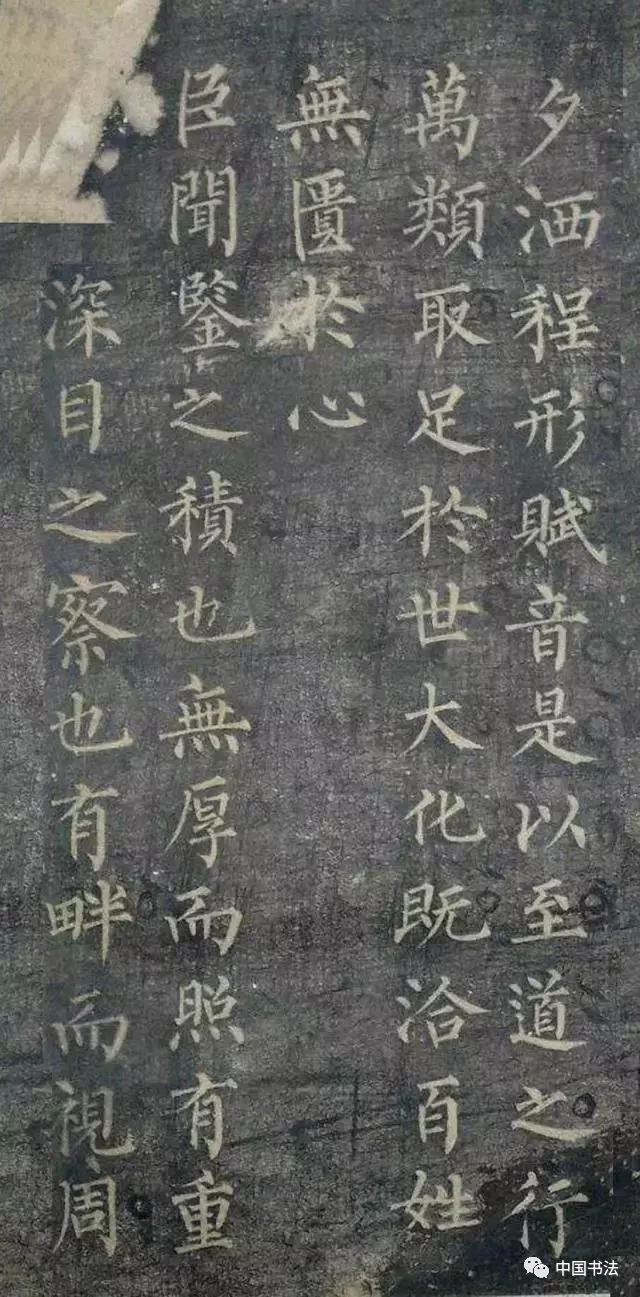 夕洒程形賦音是以至道之行
萬類取足於世大化既洽百姓
無匱於心
臣聞鑒之積也無厚而照有重
深目之察也有畔而視周
中国书法